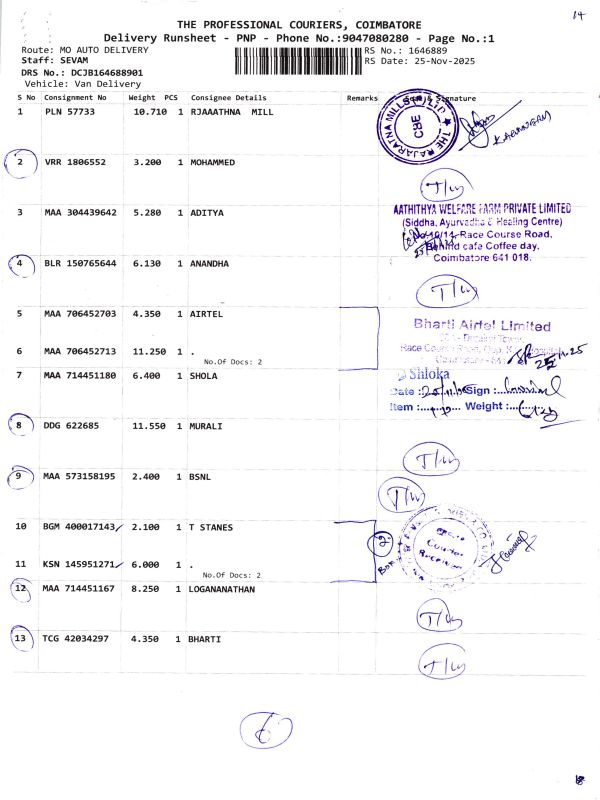 14
THE PROFESSIONAL COURIERS, COIMBATORE
Delivery Runsheet - PNP - Phone No.:9047080280 - Page No.:1
Route: MO AUTO DELIVERY
RS No.: 1646889
Staff: SEVAM
RS Date: 25-Nov-2025
DRS No.: DCJB164688901
Vehicle: Van Delivery
S No Consignment No Weight PCS Consignee Details Remarks Signature
1 PLN 57733 10.710 1 RJAAATHNA MILL
THE RAJARATNA MILLS CBE
2 VRR 1806552 3.200 1 MOHAMMED
T/W
3 MAA 304439642 5.280 1 ADITYA
AATHITHYA WELFARE FARM PRIVATE LIMITED
(Siddha, Ayurvadha & Healing Centre)
Race Course Road,
Behind cafe Coffee day,
Coimbatore 641 018.
4 BLR 150765644 6.130 1 ANANDHA
T/W
5 MAA 706452703 4.350 1 AIRTEL
Bharti Airtel Limited
6 MAA 706452713 11.250 1 .
No.Of Docs: 2
7 MAA 714451180 6.400 1 SHOLA
Shloka
Date : Sign :
Item : Weight :
8 DDG 622685 11.550 1 MURALI
T/W
9 MAA 573158195 2.400 1 BSNL
T/W
10 BGM 400017143 2.100 1 T STANES
Courier
11 KSN 145951271 6.000 1 .
No.Of Docs: 2
12 MAA 714451167 8.250 1 LOGANANATHAN
T/W
13 TCG 42034297 4.350 1 BHARTI
T/W
6